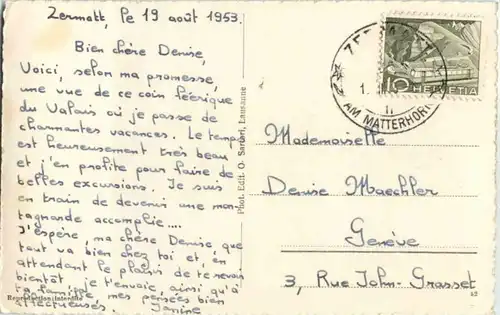 Zermatt, le 19 août 1953.
Bien chère Denise,
Voici, selon ma promesse,
une vue de ce coin féérique
du Valais où je passe de
charmantes vacances. Le temps
est heureusement très beau
et j'en profite pour faire de
belles excursions. Je suis
en train de devenir une mon-
tagnarde accomplie....
J'espère, ma chère Denise que
tout va bien chez toi et, en
attendant le plaisir de te revoir
bientôt, je t'envoie, ainsi qu'à
ta famille, mes pensées bien
affectueuses. Janine
Reproduction interdite
Phot. Edit. O. Sartori, Lausanne
ZERMATT
AM MATTERHORN
10 HELVETIA
Mademoiselle
Denise Maechler
Genève
3, Rue John-Grasset